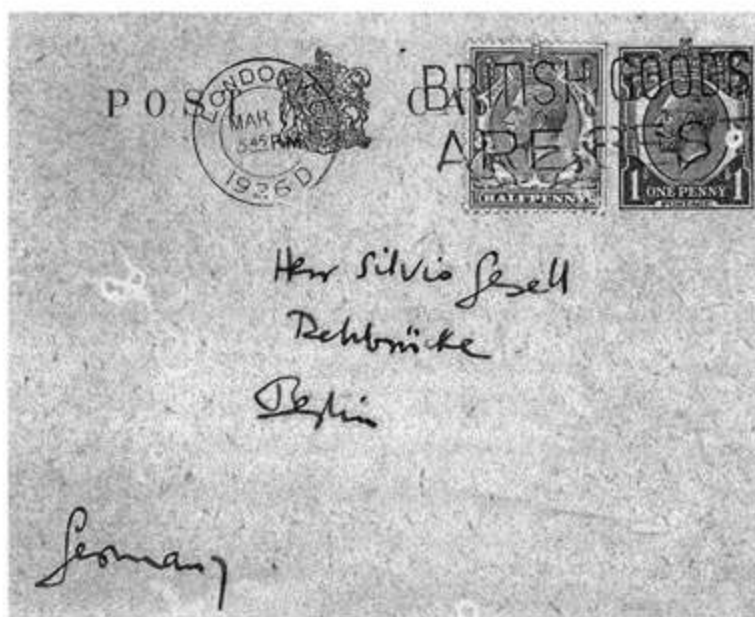 POST CARD
LONDON
MAR
5.45 P.M.
1926 D
BRITISH GOODS
ARE BEST
HALFPENNY
1 ONE PENNY 1
POSTAGE
Herr Silvio Gesell
Rehbrücke
Berlin
Germany